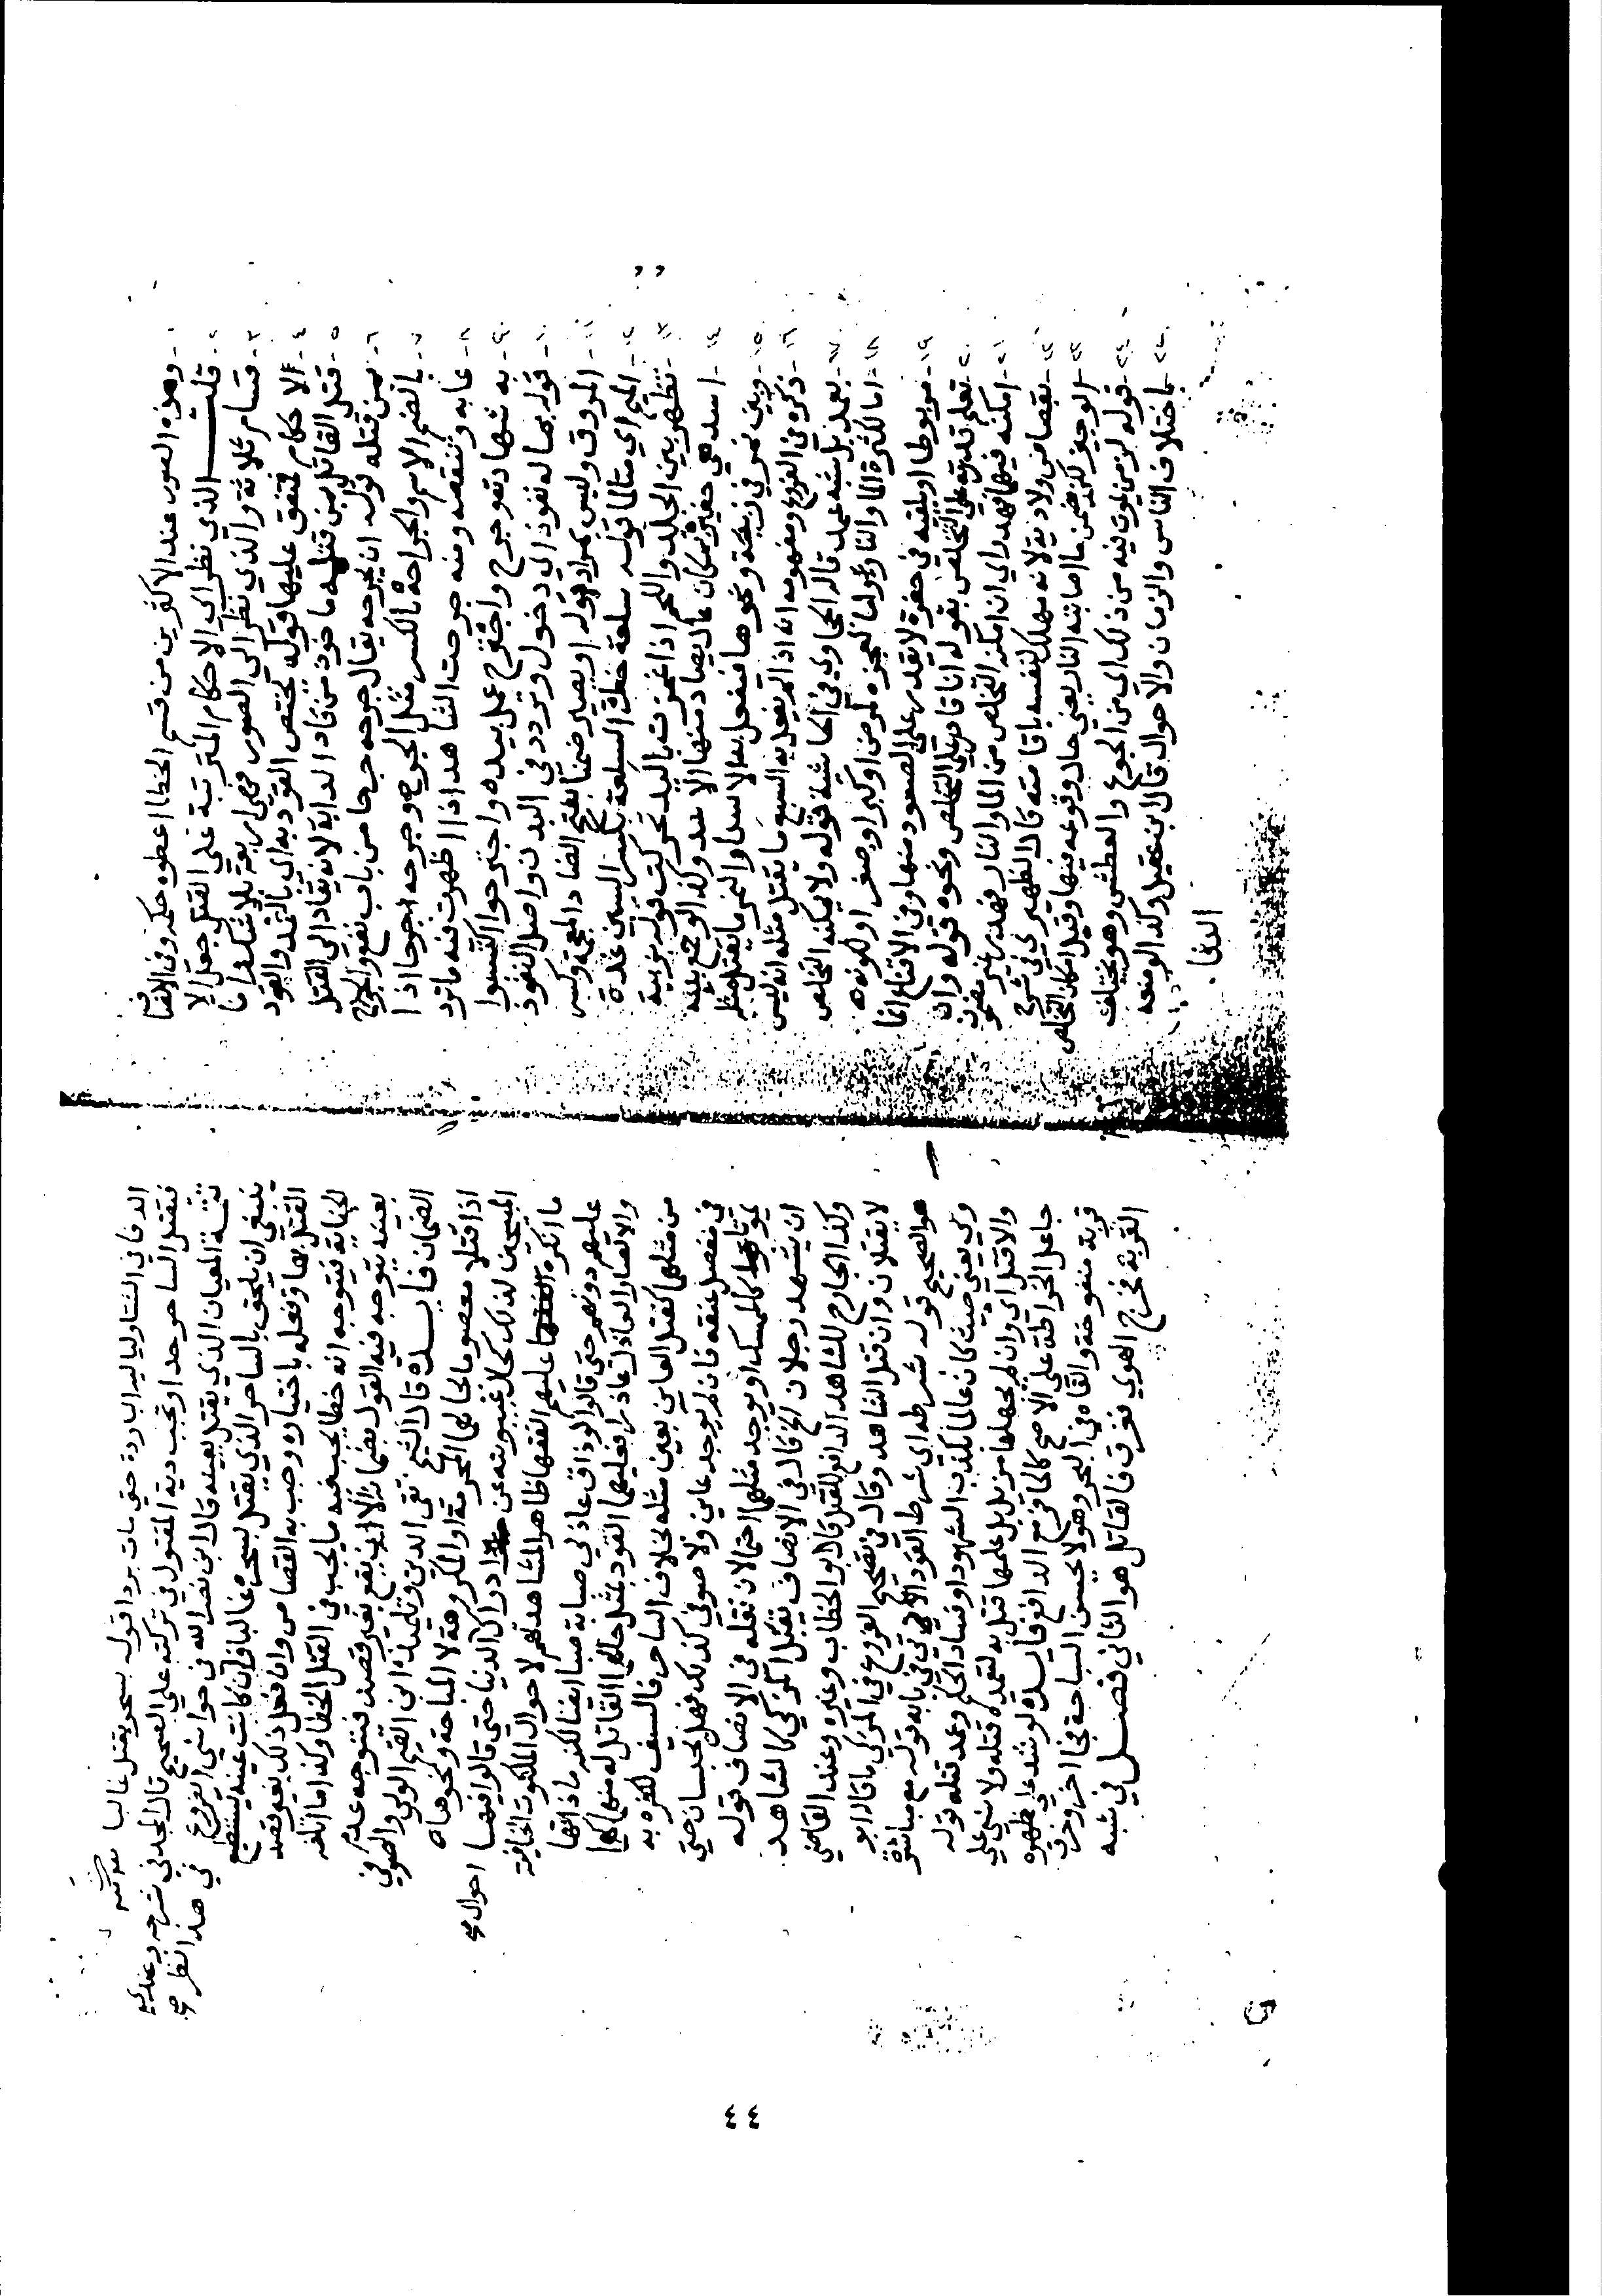 وهذه الصور عند الاكثرين من قسم الخطا اعطوه حكمه وفي الانصا
قلت الذي نظر الي الاحكام المترتبة علي القتل جعل الا
قسام ثلاثة والذي نظر الي الصور فهي اربعة بلا شك واما
الاحكام فمتفق عليها قوله يختص القود به اي بالعمد والقود
قتل القاتل بمن قتله ماخوذ من قاد الدابة لانه يقاد الي القتل
بمن قتله قوله ان يجرحه يقال جرحه جرحا من باب نفع والجرح
بالضم الاسم والجراحة بالكسر مثل الجرح وجرحه جرحا اذا
عابه وتنقصه ومنه جرحت الشاهد اذا اظهرت فيه ما ترد
به شهادته وجرح واجترح عمل بيده واجترحوا اكتسبوا
قوله بما له نفوذ اي دخول وتردد في البدن واصل النفوذ
المروق وليس بمراد قوله او يصير ضمنا بفتح الضاد المعجمة وكسر
الميم اي متالما قوله سلعة خطرة السلعة بكسر السين غدة
تظهر بين الجلد واللحم اذا غمزت باليد تحركت قوله بزبية
اسد هي حفيرة بمكان عال يصاد منها الاسد وكذا لو جمع بينه
وبين نمر في زبية ونحوها فيفعل به الاسد او النمر ما يقتل مثله
ذكره في الفروع ومفهومه انه اذا لم يفعل به السبع ما يقتل مثله انه ليس
بعمد بل شبه عمد قاله الحجاوي في الحاشية قوله ولا يمكنه التخلص
اما لكثرة الماء والنار واما لعجزه لمرض او كبر او صغر او لكونه
مربوطا او يلقيه في حفرة لا يقدر علي الصعود منها وفي الاقناع انما
تعلم قدرته علي التخلص بقوله انا قادر علي التخلص ونحوه قوله وان
امكنه فيهما فهدر اي ان امكنه التخلص من الماء والنار فهدر غير مضمون
بقصاص ولا دية لانه مهلك لنفسه باقامته قال الظهيري في شرح
الوجيز لكن يضمن ما اصابته النار يعني حال وقوعه فيها وقبل امكان التخلص
قوله لزمن يموت فيه من ذلك اي من الجوع والعطش وهو يختلف
باختلاف الناس والزمان والاحوال قاله ابن عقيل وكذا لو منعه
الدفا
الدفا في الشتا ولياليه الباردة حتي مات بردا قوله بسحر يقتل غالبا
فيقتل الساحر حدا وتجب دية المقتول في تركته علي الصحيح قاله المجد في شرحه وعندي
في هذا نظر صح
تتمة المعيان الذي يقتل بعينه قال ابن نصر الله في حواشي الفروع
ينبغي ان يلحق بالساحر الذي يقتل بسحره غالبا فان كانت عينه يستطيع
القتل بها وتفعله باختياره وجب به القصاص وان فعل ذلك بغير قصد
الجناية فيتوجه انه خطا يجب فيه ما يجب في القتل الخطا وكذا ما اتلفه
بعينه يتوجه فيه القول بضمانه الا ان يقع بغير قصد فيتوجه عدم
الضمان فايدة قال الشيخ تقي الدين وتلميذه ابن القيم الولي والصوفي
اذا قتلا معصوما بحالهما المحرمة او المكروهة لا المباحة ونحوها
احوال صح
المبيحين لذلك كحال غيبوبته عن ادراك الدنيا حتي قالوا فيهما
ما انكره عليهم الفقها ظاهر المشاهدتهم لاحوال الملكوت الخافية
عليهم دونهم حتي قالوا لو ذاق عاذلي صبابة صبا معنا لكنه ماذاقها
والاقصار العاذل عاذرا فعليهما القود بمثل حالهما القاتل له منهما كما
من مثلهما كقتل العاين بعين مثله بخلاف الساحر فالسيف لكفره به
في نفصل عنقه فان لم يوجد عاين ولا صوفي كذلك فهل يحبسان حتي
يموتا كالممسك او يوجد مثلهما احتمالان نقله في الانصاف قوله
ان يشهد رجلان الخ قال في الانصاف يقبل المزكي كالشاهد
وكذا الجارح للشاهد الدافع للقتل قال ابو الخطاب وغيره وعند القاضي
لا يقتلان وان قتل الشاهد وقال في تصحيح الفروع في المزكي ما قاله ابو
هو الصحيح قوله بشرطه اي شرط القود الاتي في بابه قوله مع مباشرة
ولي يعني حيث كان عالما بكذب الشهود او فساد الحكم وعمد قتله قوله
والا قتل اي وان لم يجهلها من يزيل علمها قتل به لتعمده قتله ولا شي علي
جاعل الخراطة علي الاصح كالحافر مع الدافع فايدة لو شد علي ظهره
قربة منفوخة والقاه في البحر وهو لا يحسن السباحة فجا اخر وخرق
القربة فخرج الهوي فغرق فالقاتل هو الثاني فصل في شبه
٤٤